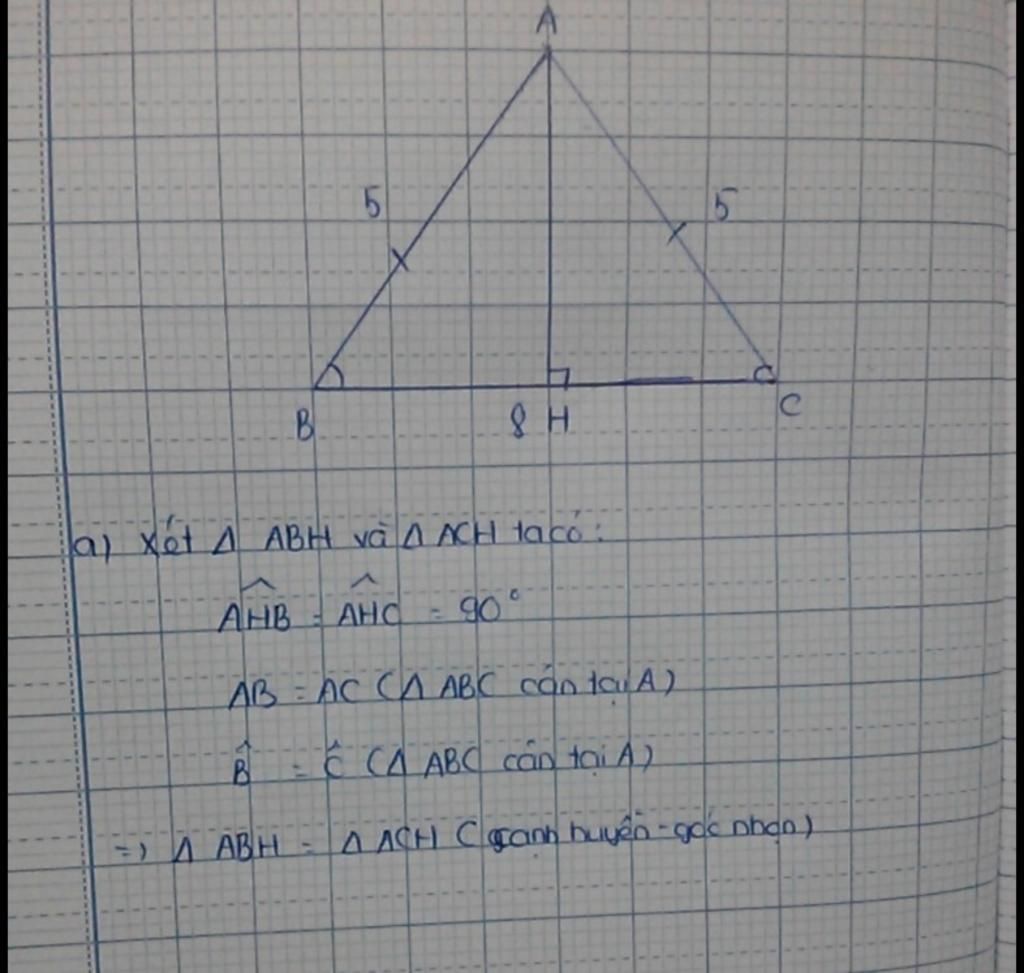 A
5
5
B
8 H
C
a) Xét Δ ABH và Δ ACH ta có:
$\widehat{AHB}$ = $\widehat{AHC}$ = 90°
AB = AC (Δ ABC cân tại A)
$\hat{B}$ = $\hat{C}$ (Δ ABC cân tại A)
=) Δ ABH = Δ ACH (cạnh huyền - góc nhọn)